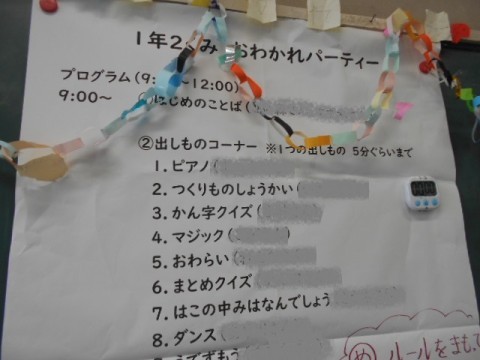 1年2くみ おわかれパーティー
プログラム(9: ~12:00)
9:00~ ①はじめのことば(
②出しものコーナー ※1つの出しもの 5分ぐらいまで
1.ピアノ(
2.つくりものしょうかい(
3.かん字クイズ(
4.マジック(
5.おわらい(
6.まとめクイズ
7.はこの中みはなんでしょう
8.ダンス
9.うでずもう
め ルールをまもって